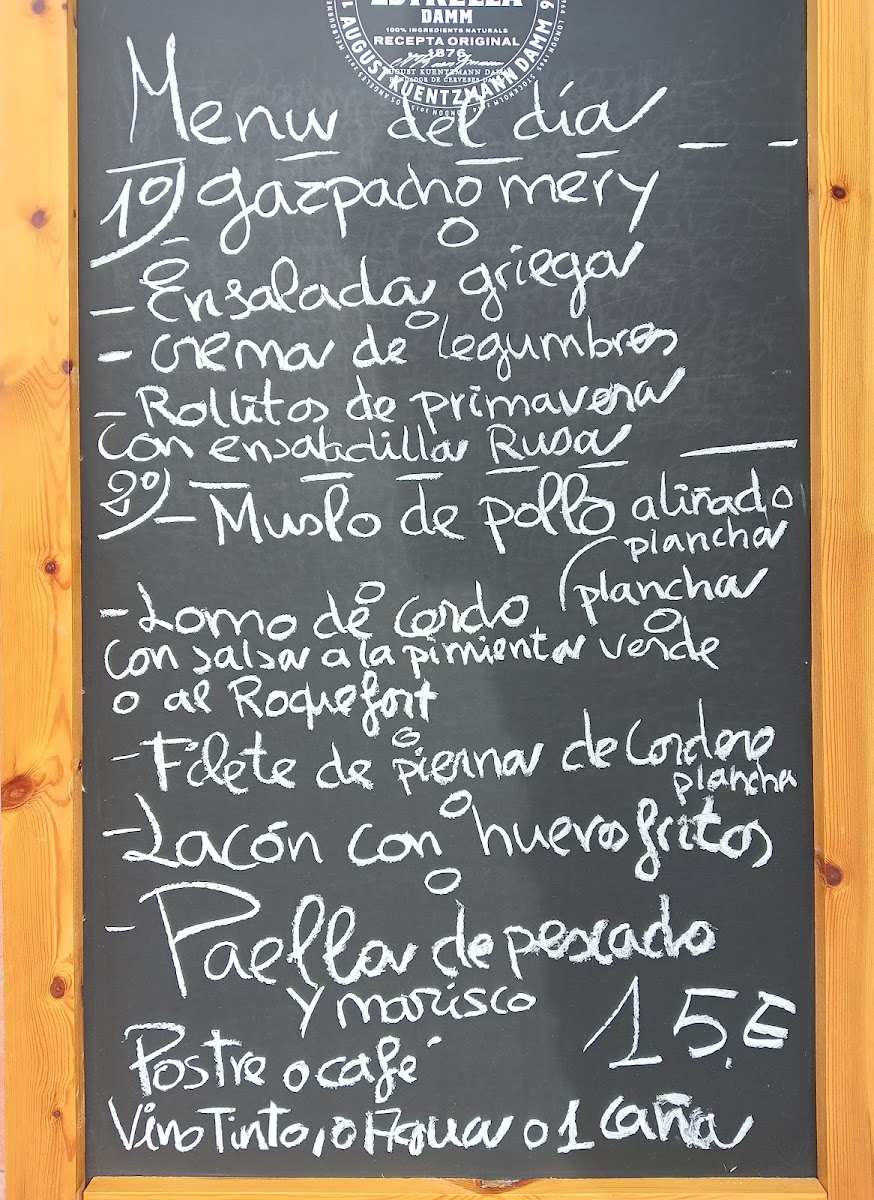 ESTRELLA
DAMM
100% INGREDIENTS NATURALS
RECEPTA ORIGINAL
1876
AUGUST KUENTZMANN DAMM
FUNDADOR DE CERVESES DAMM
AUGUST KUENTZMANN DAMM
Menu del día
1º) gazpacho mery
o
- Ensalada griega
o
- crema de legumbres
- Rollitos de primavera
con ensaladilla Rusa
2º) - Muslo de pollo aliñado
plancha
o
- Lomo de cerdo (plancha
o
con salsa a la pimienta verde
o al Roquefort
o
- Filete de pierna de Cordero
plancha
o
- Lacón con huevos fritos
o
- Paella de pescado
y marisco
15,€
Postre o café
Vino Tinto, o Agua o 1 caña